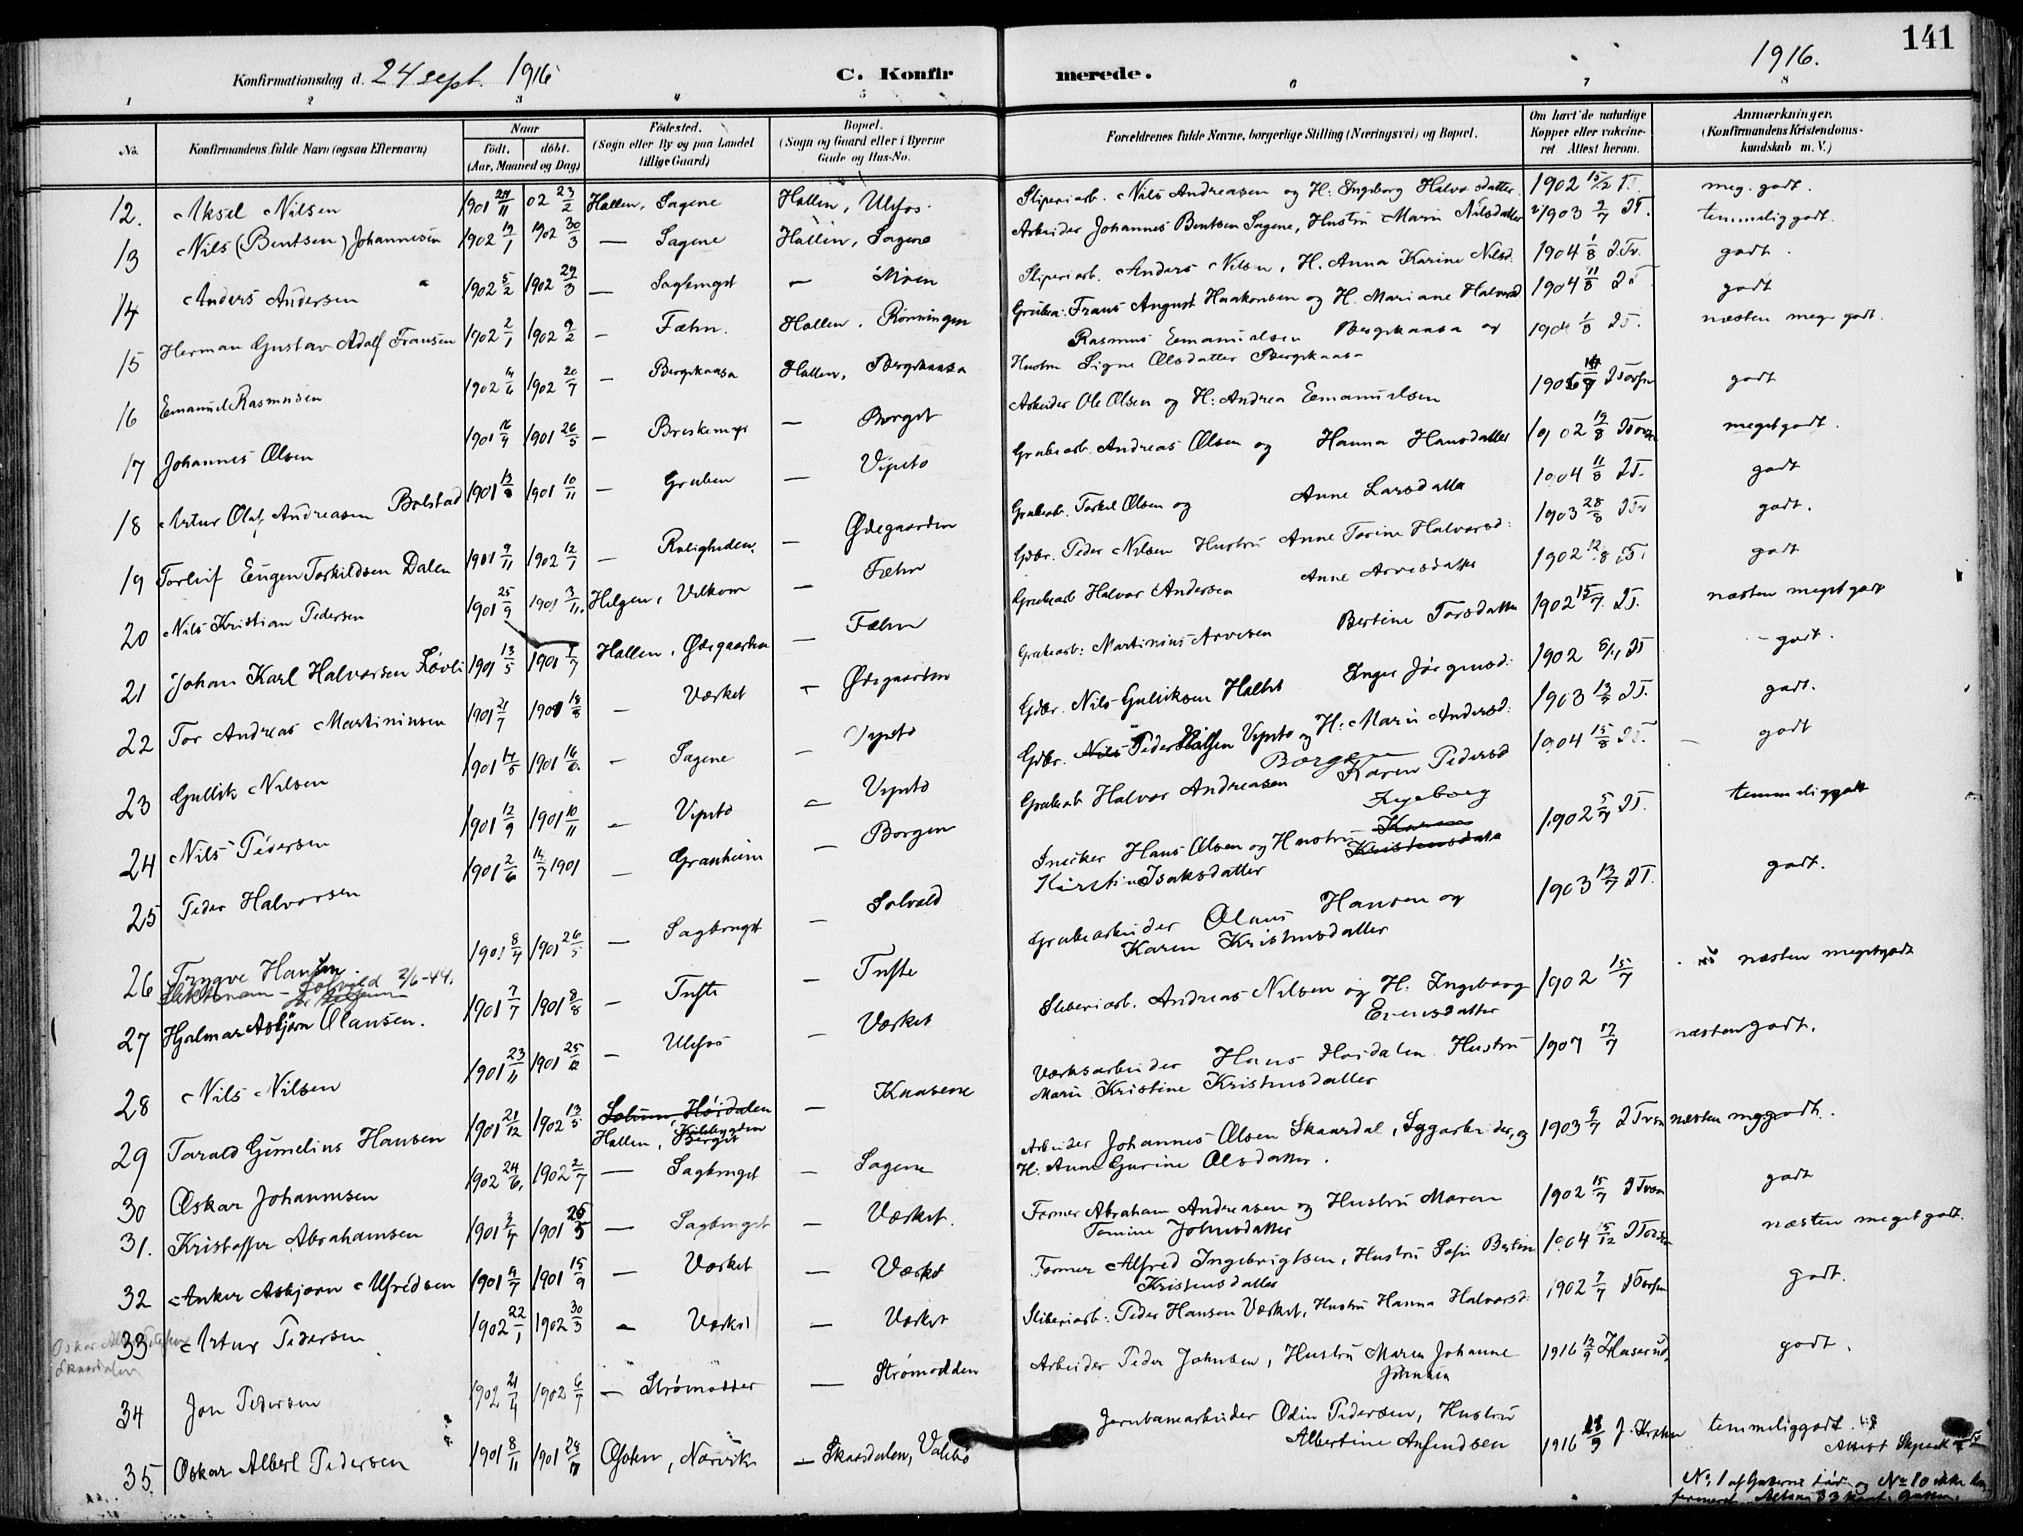 141
Konfirmationsdag d. 24 sept. 1916 C. Konfirmerede. 1916.
1 2 3 4 5 6 7 8
No. Konfirmandens fulde Navn (ogsaa Efternavn) Naar födt. döbt. (Aar, Maaned og Dag) Födested. (Sogn eller By og paa Landet tillige Gaard) Bopæl. (Sogn og Gaard eller i Byerne Gade og Hus-No. Forældrenes fulde Navne, borgerlige Stilling (Næringsvei) og Bopæl. Om havt de naturlige Kopper eller vakcineret Attest herom. Anmærkninger. (Konfirmandens Kristendomskundskab m. V.)
12. Aksel Nilsen 1901 24/11 02 23/2 Hollen, Sagene Hollen, Ulefos. Sliperiarb. Nils Andreasen og H. Ingeborg Halvorsdatter 1902 15/2 meg. godt.
13 Nils (Bentsen) Johannesen 1902 19/1 1902 30/3 — Sagene Hollen, Sagene Arbeider Johannes Bentsen Sagene, Hustru Maria Nilsdatter 1903 2/7 JT. temmelig godt.
14 Anders Andersen 1902 5/2 1902 29/3 — Sagbruget — Moen Sliperiarb. Anders Nilsen, H. Anna Karine Nilsd. 1904 1/8 godt.
15 Herman Gustav Adolf Fransen 1902 2/1 1902 9/2 — Fæhn. Hollen, Rønningen Grubea. Frans August Haakonsen og H. Mariane Halvorsd 1904 11/8 godt
16 Emanuel Rasmusen 1902 4/6 1902 20/7 — Bergskaasa Hollen, Bergskaasa Rasmus Emanuelsen Bergskaasa og Hustru Signe Olsdatter Bergskaasa 1904 1/8 næsten meg. godt.
17 Johannes Olsen 1901 16/4 1901 26/5 — Breskemyr — Berget Arbeider Ole Olsen og H. Andrea Emanuelsen godt
18 Artur Olaf Andreasen Bolstad 1901 13/8 1901 10/11 — Gruben — Vipeto Grubearb. Andreas Olsen og Hanna Hansdatter 02 19/8 meget godt.
19 Torleif Eugen Torkildsen Dalen 1901 9/11 1902 12/1 — Roligheden. — Ødegaarden Grubearb. Torkel Olsen og Anne Larsdatte 1904 11/8 godt
20 Nils Kristian Pedersen 1901 25/9 1901 3/11. Helgen, Velkom — Fæhn Gdbr. Peder Nilsen Hustru Anne Torine Halvorsd. 1903 28/8 godt.
21 Johan Karl Halvorsen Løvli 1901 13/5 1901 7/7 Hollen, Ødegaarden — Fæhn Grubearb Halvor Andersen Anne Arvesdatter 1902 12/8 godt
22 Tor Andreas Martiniusen 1901 21/7 1901 18/8 — Værket — Ødegaarden Grubearb: Martinius Arvesen Bertine Torsdatter 1902 15/7. næsten meget godt
23 Gullik Nilsen 1901 14/5 1901 16/6. — Sagene — Vipeto Gdbr. Nils Gulliksen Inger Jørgensd. 1902 6/11 godt.
24 Nils Pedersen 1901 12/9 1901 10/11 — Vipeto — Vipeto Gdbr. Nils Peder Nilsen Vipeto og H. Maria Andersd. 1903 13/7 godt.
25 Peder Halvorsen 1901 2/6 14/7 1901 — Granheim — Borgen Grubearb Halvor Andreasen Borgen Karen Pedersd 1904 15/8 godt
26 Trygve Hansen. Slektsnavn – Solveld 2/6-44. 1901 8/4 1901 26/5 — Sagbruget — Solveld Snecker Hans Olsen og Hustru Ingeborg Karen Kristensdatte Kirstine Isaksdatter 1902 5/7 temmelig godt
27 Hjalmar Asbjørn Olausen. 1901 7/7 1901 8/8 — Tufte — Tufte Grubearbeider Olaus Hansen og Karen Kristensdatter 1903 13/7 godt.
28 Nils Nilsen 1901 23/11 1901 25/12 — Ulefos — Værket Sliberiarb. Andreas Nilsen og H. Ingeborg Evensdatter 1902 15/7 næsten meget godt
29 Torald Gumelius Hansen 1901 21/12 1902 13/5 Solum, Høidalen Hollen, Berget — Kaasene Værksarbeider Hans Høidalen Hustru Maria Kristine Kristensdatter 1907 17/7 næsten godt.
30 Oskar Johannesen 1902 24/6. 1902 2/7 — Sagbruget — Sagene Arbeider Johannes Olsen Skaardal, Lygarbeider, og H. Anne Gurine Olsdatter. 1903 9/7 næsten meg godt.
31. Kristoffer Abrahamsen 1901 3/4 1901 26/5 — Sagbruget — Værket. Former Abraham Andreasen og Hustru Maren Tomine Johnsdatter 1902 15/7 godt
32 Anker Asbjørn Alfredsen 1901 4/7 1901 15/9 — Værket — Værket Former Alfred Ingebrigtsen, Hustru Sofie Bertine Kristensdatter 1904 15/12 næsten meget godt.
33 Artur Pedersen 1902 22/1 1902 30/3 — Værket — Værket Sliberiarb. Peder Hansen Værket, Hustru Hanna Halvorsd. 1902 7/7 godt.
34 Jon Pedersen 1902 21/4 1902 6/7 — Strømodden — Strømodden Arbeider Peder Johnsen, Hustru Maren Johanne Johnsen 1916 12/9 godt.
35. Oskar Albert Pedersen 1901 8/11 1901 29/11 Ofoten, Narvik — Skaardalen, Valebø Jernbanearbeider Odin Pedersen, Hustru Albertine Arfendsen 1916 temmelig godt.
Oskar
Skaardalen